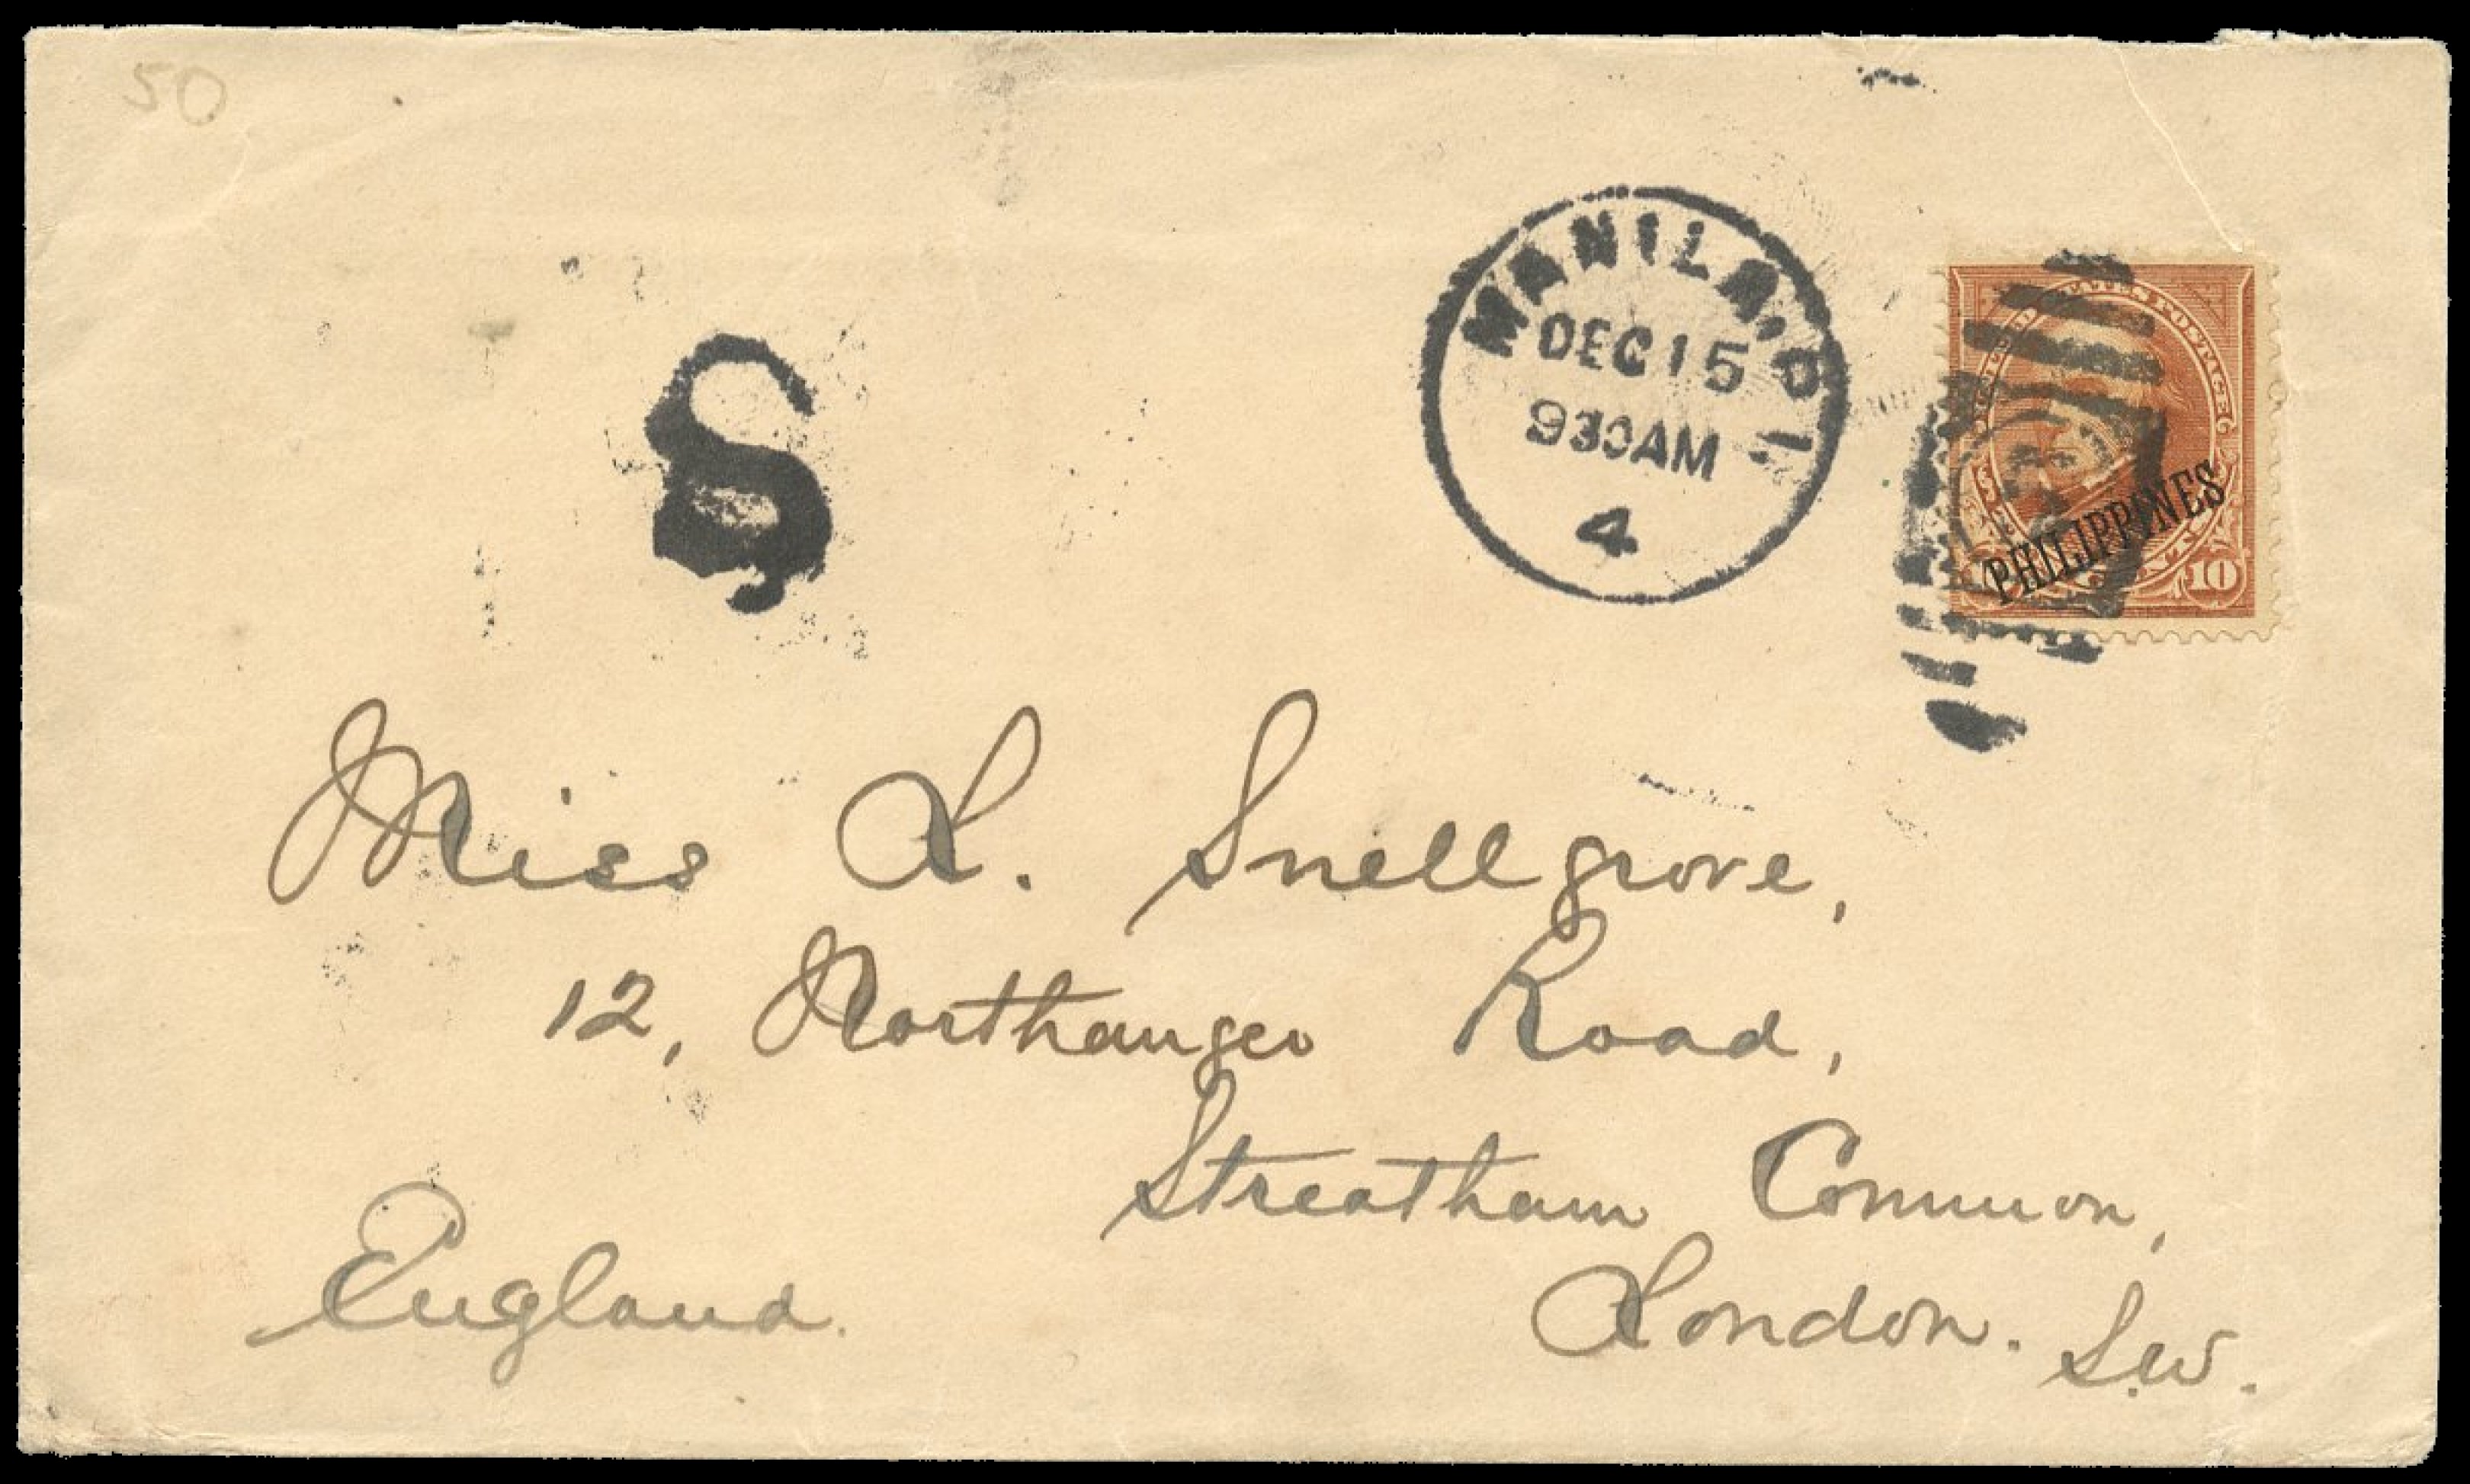 50
S
MANILA, P.I.
DEC 15
930AM
4
POSTAGE
PHILIPPINES
10
Miss L. Snellgrove,
12, Northanger Road,
Streatham Common,
London. S.W.
England.